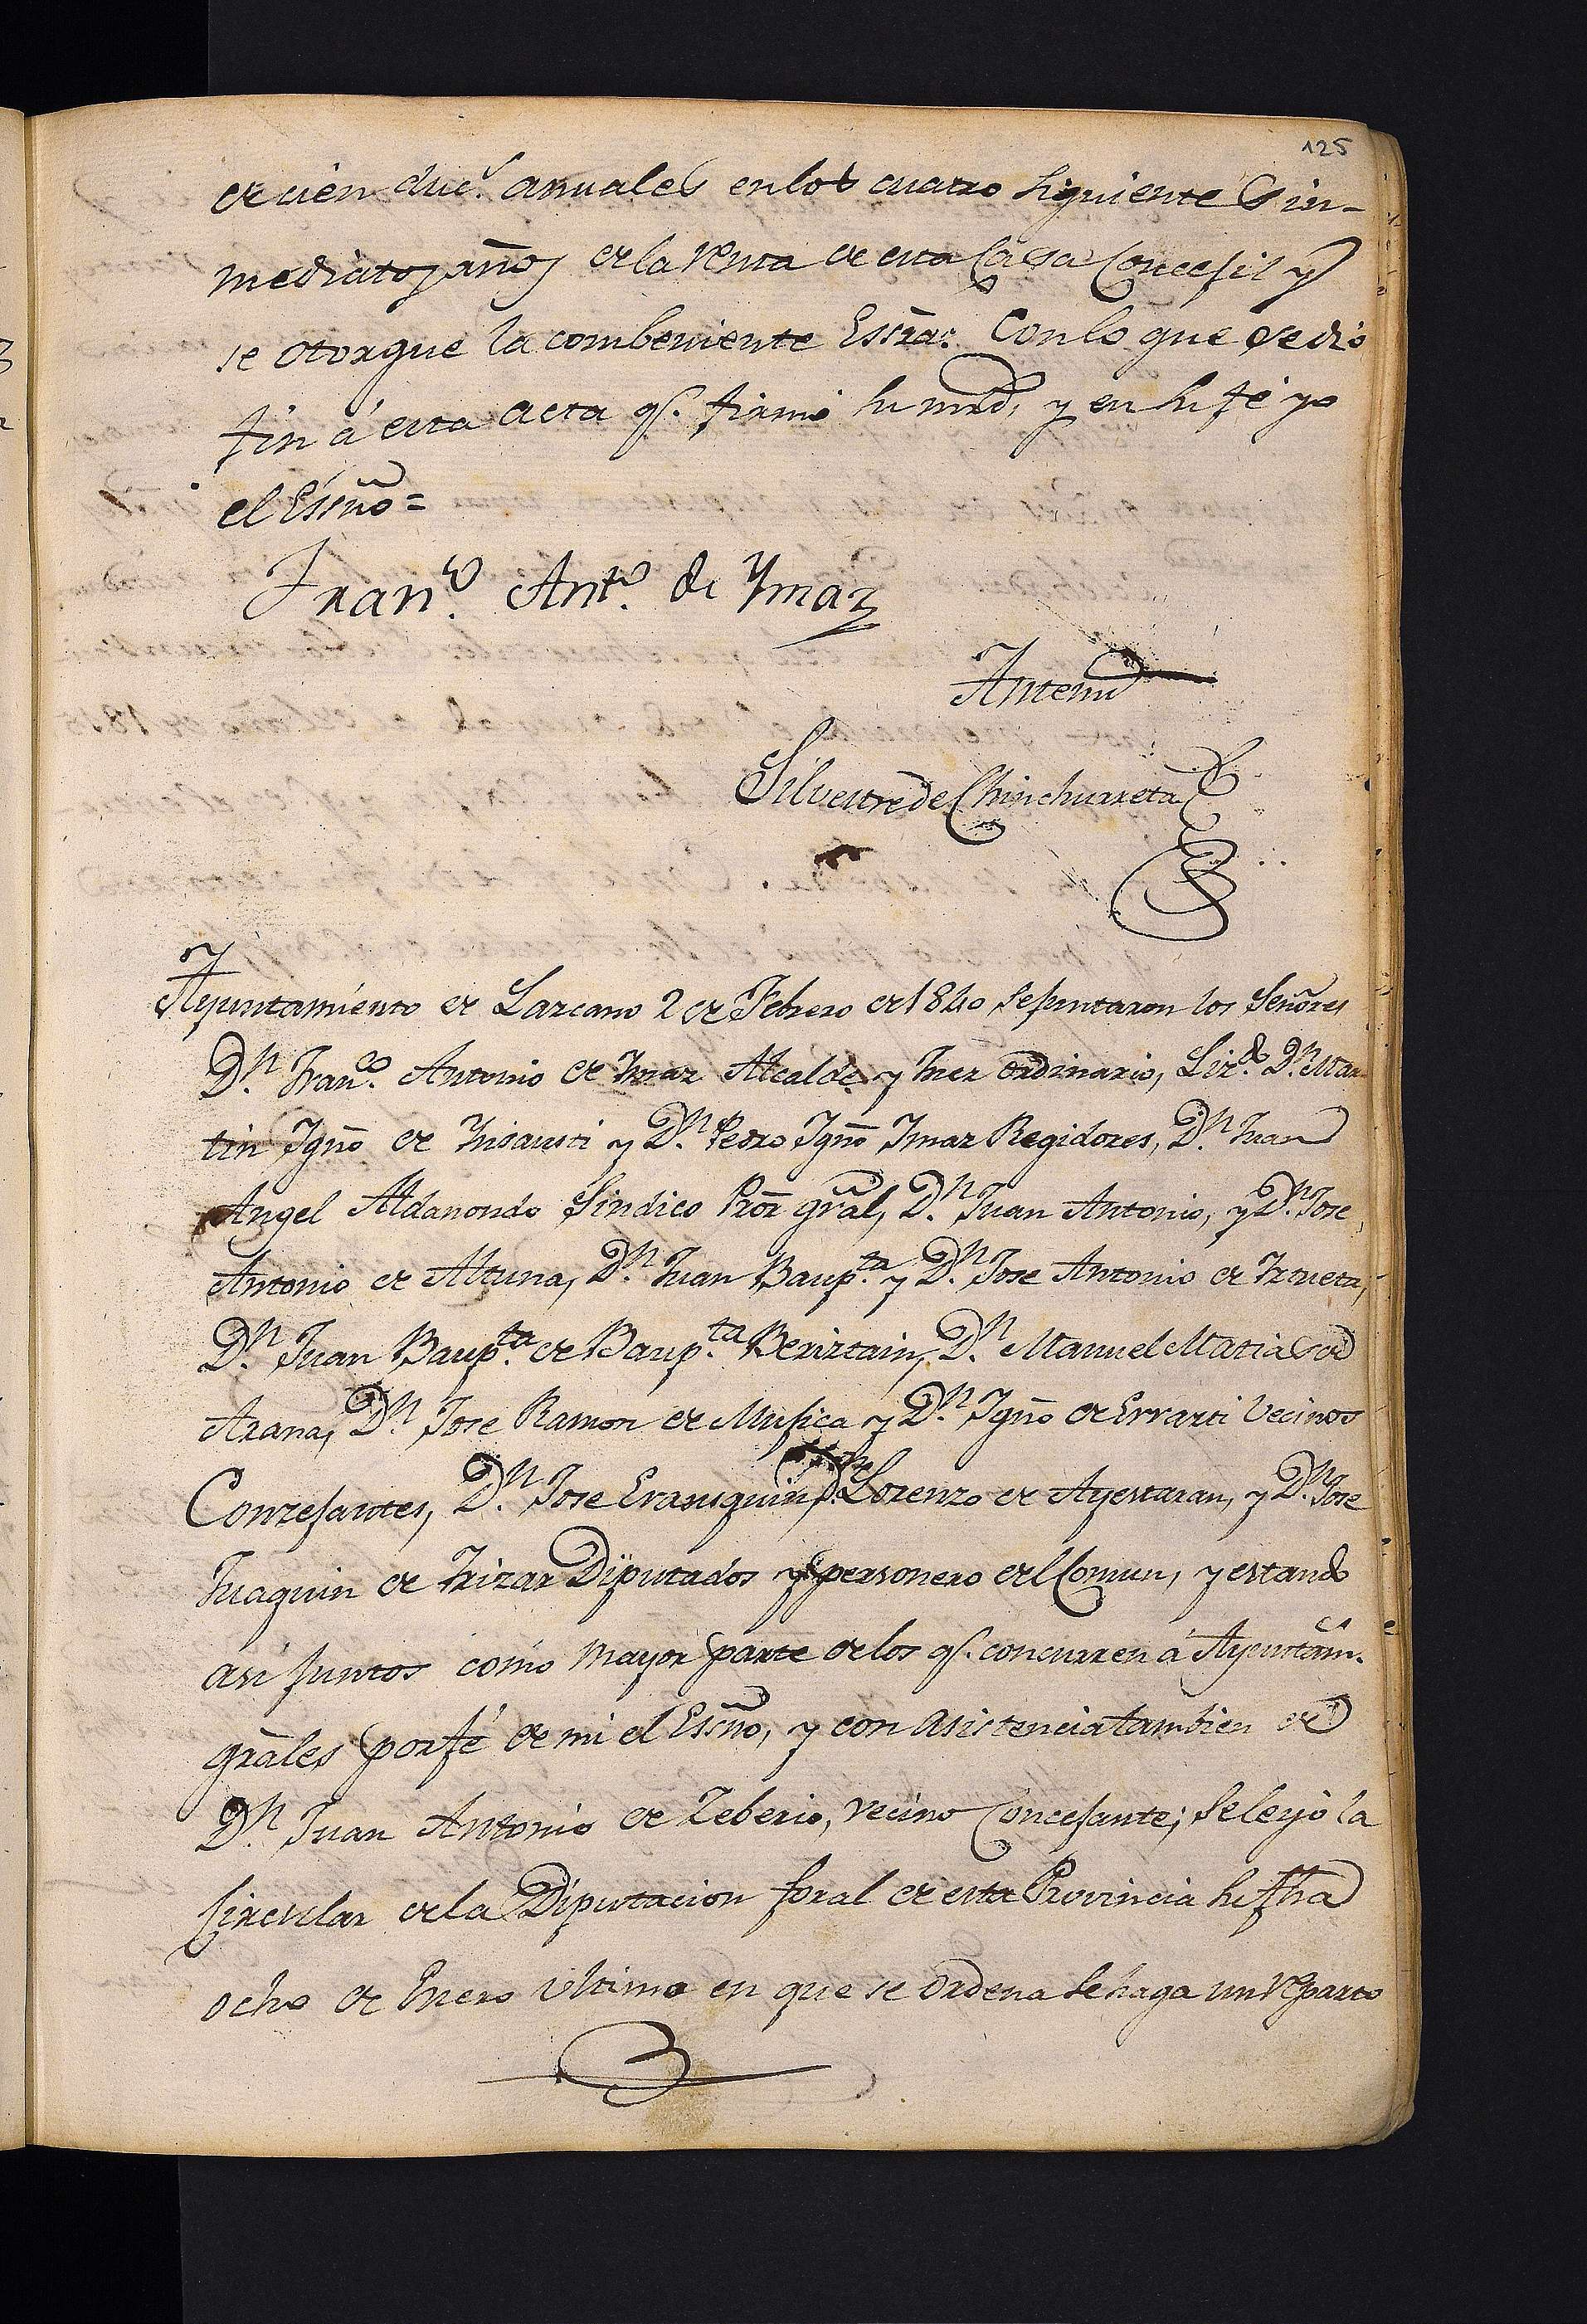 125
de cien duc.s anuales en los cuatro siguientes in-
mediatos años de la renta de esta Casa Concejil y
se otorgue la combeniente Essrã. Con lo que se dio
fin á esta acta q.e firmó su mrd, y en su fé yo
el Essño=
Fran.co Ant.o de Ymaz
Antemi
Silvestre de Chinchurreta
Ayuntamiento de Lazcano 2 de Febrero de 1840 se juntaron los Señores
D.n Fran.co Antonio de Imaz Alcalde y Juez ordinario, Liz.do D.n Mar-
tin Ygño de Insausti y D.n Pedro Ygño Imaz Regidores, D.n Juan
Angel Aldanondo Sindico Prõr grãl, D.n Juan Antonio, y D.n Jose
Antonio de Altuna, D.n Juan Baup.ta y D.n Jose Antonio de Iztueta,
D.n Juan Baup.ta de Baup.ta Beriztain, D.n Manuel Matias de
Arana, D.n Jose Ramon de Mujica y D.n Ygño de Errazti Vecinos
Conzejantes, D.n Jose Eransquin, Lorenzo de Ayestaran, y D.n Jose
Juaquin de Irizar Diputados y personero del Comun, y estando
asi juntos como mayor parte de los q.e concurren á Ayuntãm.
grãles por fé de mi el Essño, y con asistencia tambien de
D.n Juan Antonio de Zeberio, vecino Concejante; se leyó la
Circular de la Diputacion foral de esta Provincia su fha
ocho de Enero ultimo en que se ordena se haga un reparto